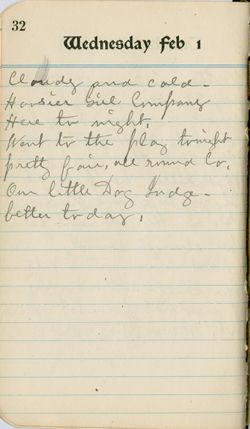 32
Wednesday Feb 1
Cloudy and cold -
Hoosier Girl Company
Here to night,
Went to the play tonight
pretty fair, all round Co,
Our little Dog Judge -
better today,